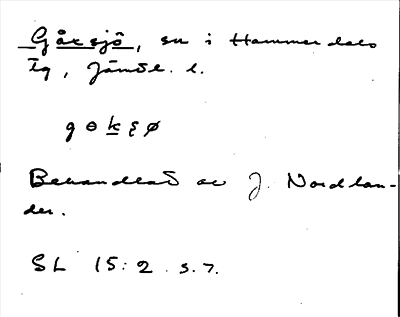 Gåxsjö, sn i Hammerdals
tg, Jämtl. l.
g ɵ k ξ ø
Behandlat av J. Nordlan-
der.
SL 15:2 s. 7.